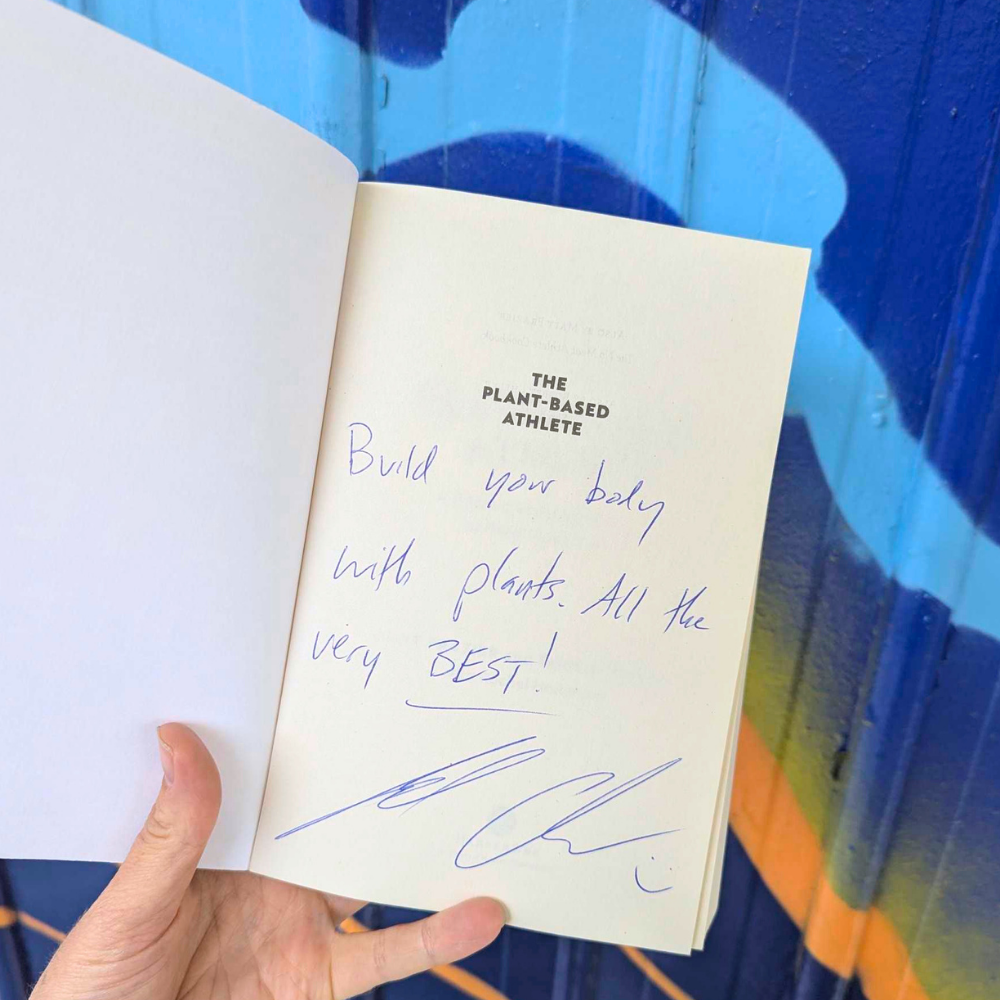 THE
PLANT-BASED
ATHLETE
Build your body
with plants. All the
very BEST!